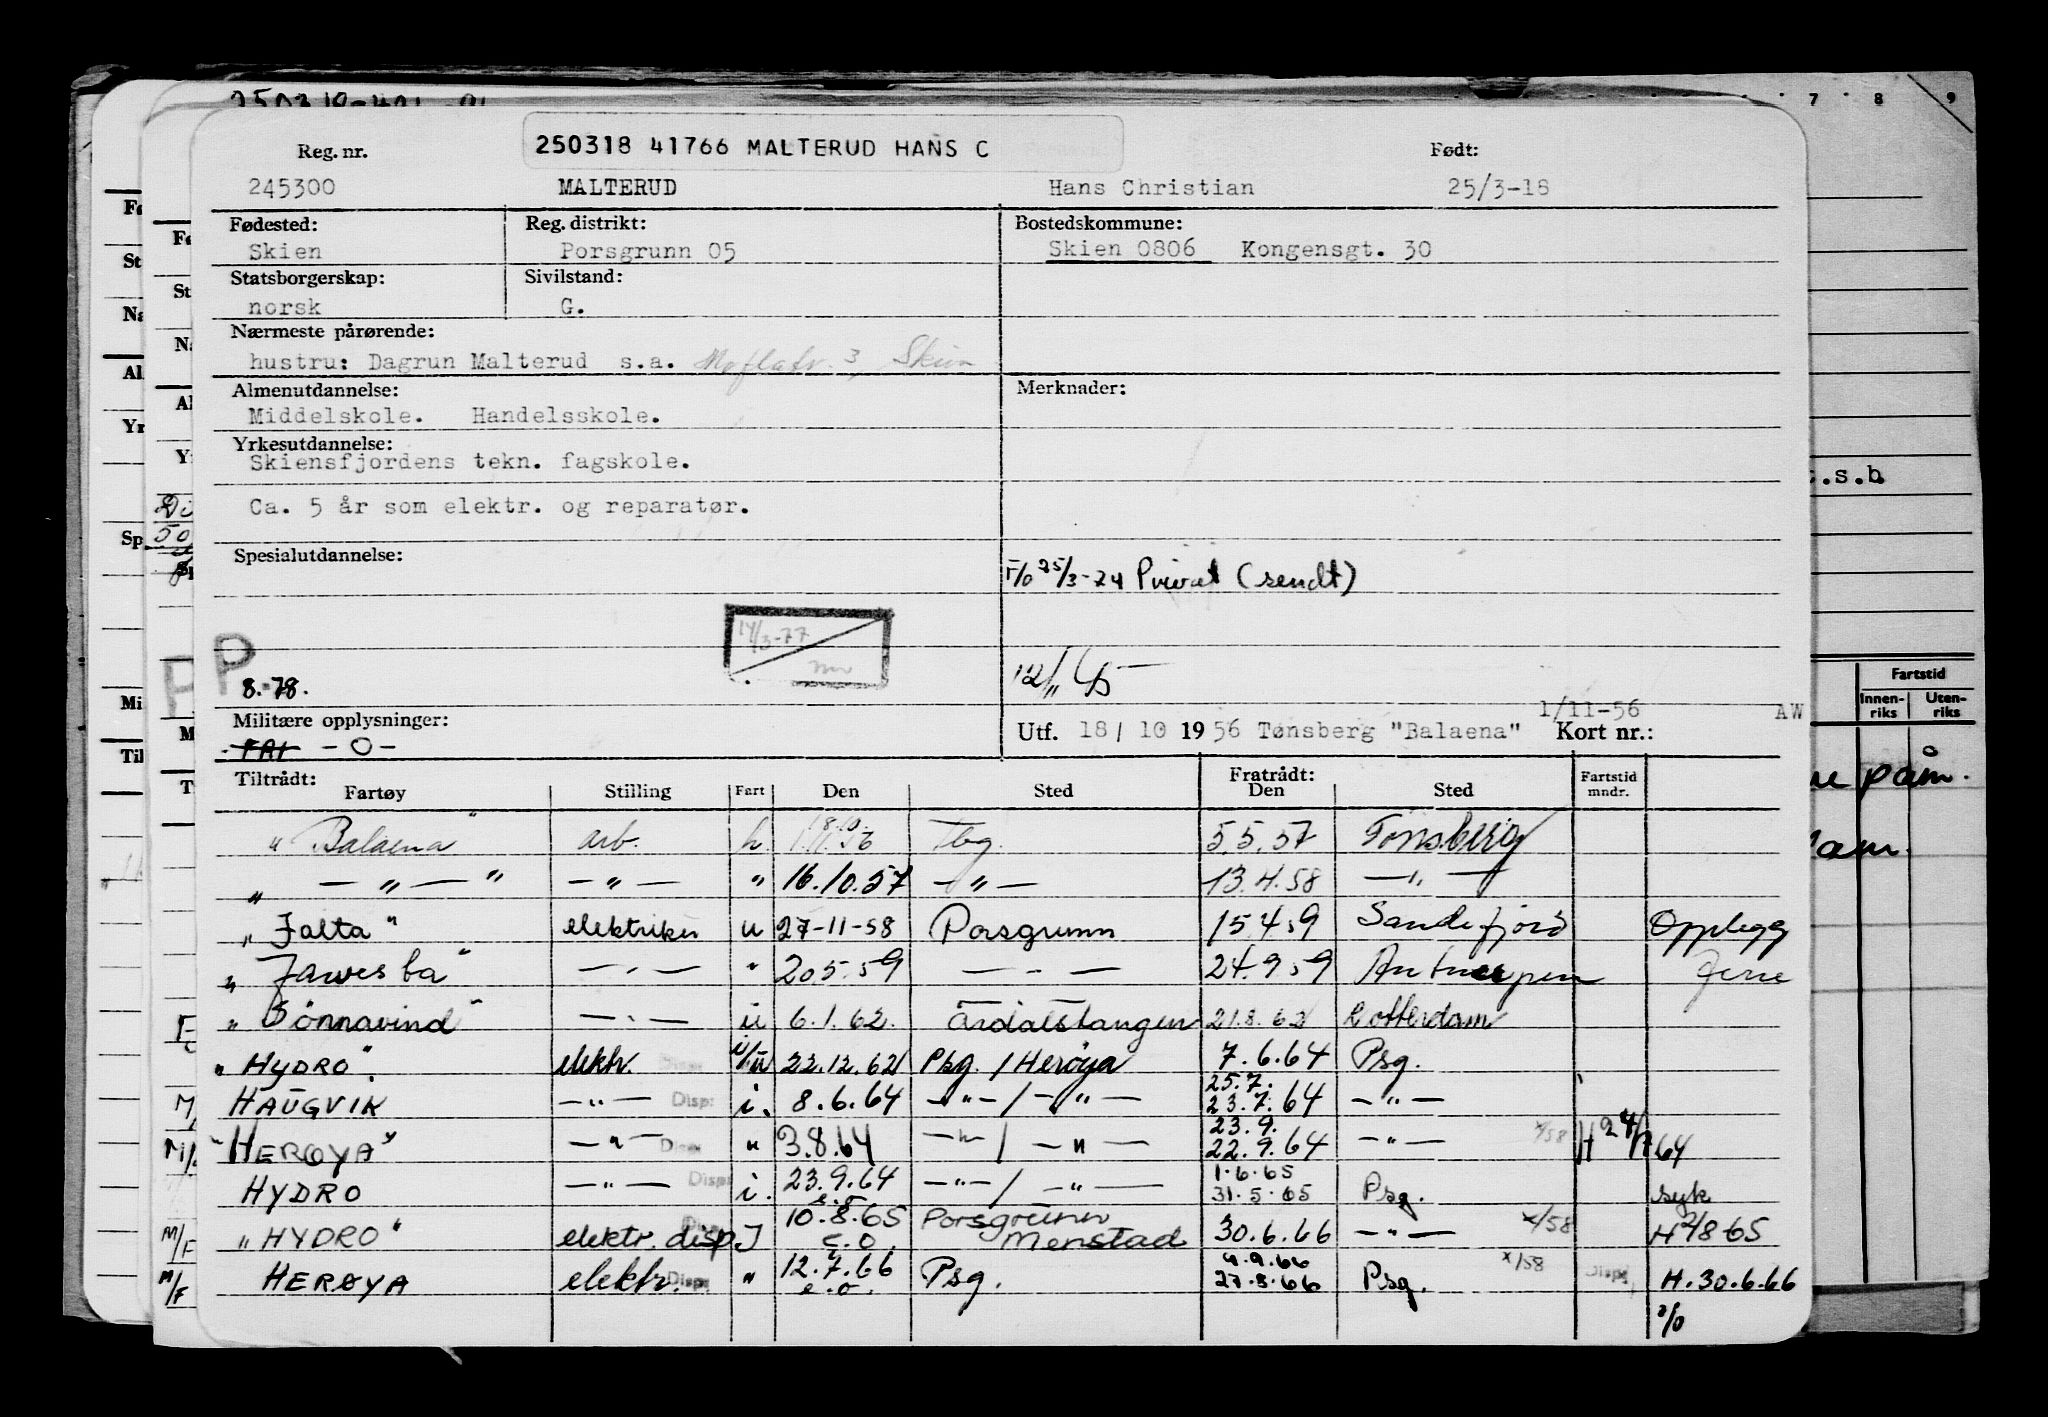 250318 41766 MALTERUD HANS C
Reg. nr. Født:
245300 MALTERUD Hans Christian 25/3-18
Fødested: Reg. distrikt: Bostedskommune:
Skien Porsgrunn 05 Skien 0806 Kongensgt. 30
Statsborgerskap: Sivilstand:
norsk G.
Nærmeste pårørende:
hustru: Dagrun Malterud s.a. 3, Skien
Almenutdannelse: Merknader:
Middelskole. Handelsskole.
Yrkesutdannelse:
Skiensfjordens tekn. fagskole.
Ca. 5 år som elektr. og reparatør.
Spesialutdannelse:
F/O 25/3-74 Privat (sendt)
P
14/3-77
8.-78.
12/11
Militære opplysninger: 1/11-56 AW
FRI -O- Utf. 18/ 10 1956 Tønsberg "Balaena" Kort nr.:
Tiltrådt: Fratrådt: Fartstid
Fartøy Stilling Fart Den Sted Den Sted mndr.
"Balaena" arb. h. 18.10. 1.11.56 Tbg. 5.5.57 Tønsberg
" — " — " — " — " 16.10.57 — " — 13.4.58 — " —
"Jalta" elektriker u 27-11-58 Porsgrunn 15.4.59 Sandefjord Opplegg
"Jawesba" — " — " 20.5.59 — " — 24.9.59 Antwerpen Ferie
"Sønnavind" — " — u 6.1.62. Årdalstangen 21.8.62 Rotterdam
"HYDRO". elektr. Disp. i/u 22.12.62 Psg. / Herøya 7.6.64 Psg.
HAUGVIK — " — Disp: i. 8.6.64 — " — / — " — 25.7. 23.7.64 — " —
"HERØYA" — " — Disp. " 3.8.64 — " — / — " — 23.9. 22.9.64 — " — x/58 H 24/7 64
HYDRO — " — Disp. i. 23.9.64 e.o. — " — / — " — 1.6.65 31.5.65 Psg. syk
M/F "HYDRO" elektr. disp I 10.8.65 e.o. Porsgrunn Menstad 30.6.66 — " — x/58 H 2/8 65
M/F HERØYA elektr. Disp. " 12.7.66 e.o. Psg. 4.9.66 27.8.66 Psg. x/58 Disp. H. 30.6.66
7 8 9
t.s.b.
Fartstid
Innenriks Utenriks